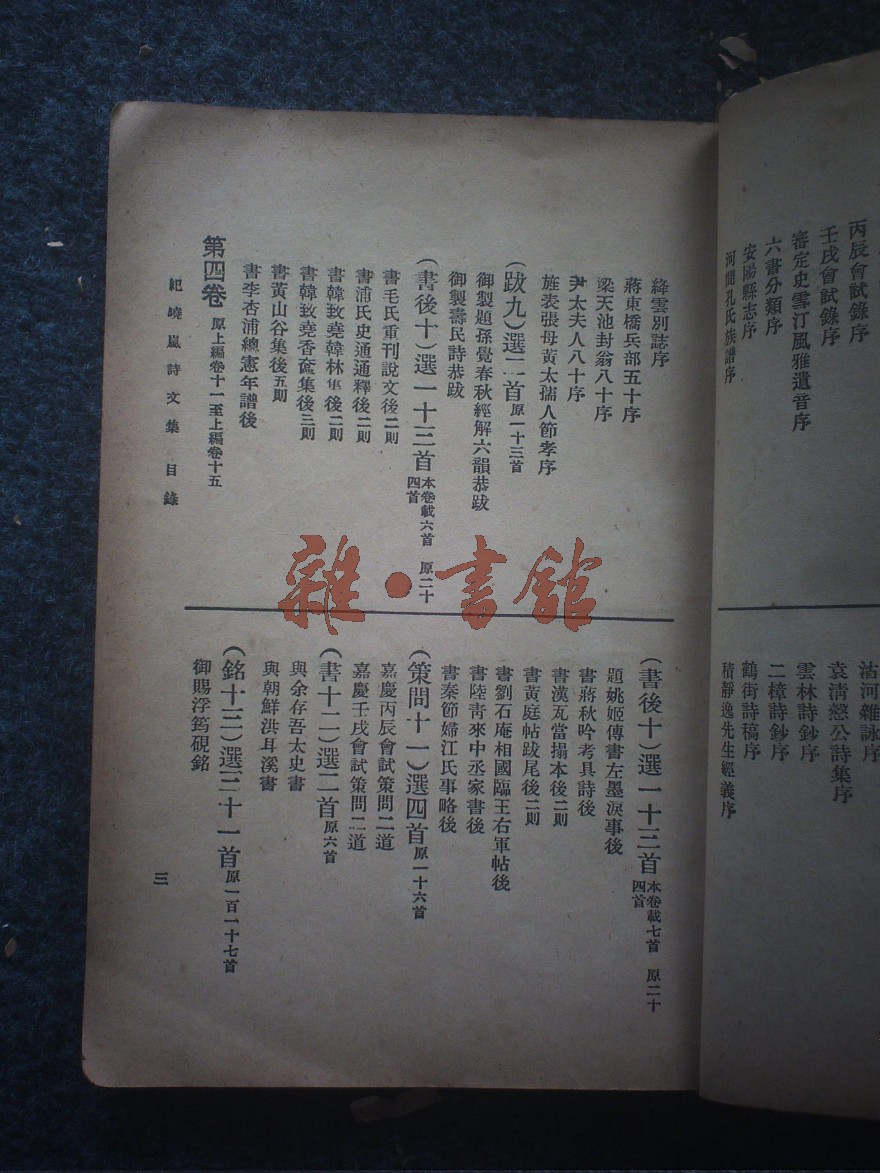 丙辰會試錄序
壬戌會試錄序
審定史雪汀風雅遺音序
六書分類序
安陽縣志序
河間孔氏族譜序
沽河雜詠序
袁清愨公詩集序
雲林詩鈔序
二樟詩鈔序
鶴街詩稿序
積靜逸先生經義序
絳雲別誌序
蔣東橋兵部五十序
梁天池封翁八十序
尹太夫人八十序
旌表張母黃太孺人節孝序
(跋九)選二首 原一十三首
御製題孫覺春秋經解六韻恭跋
御製壽民詩恭跋
(書後十)選一十三首 本卷載六首 原二十四首
書毛氏重刊說文後二則
書浦氏史通通釋後二則
書韓致堯韓林集後二則
書韓致堯香奩集後三則
書黃山谷集後五則
書李杏浦總憲年譜後
第四卷 原上編卷十一至上編卷十五
(書後十)選一十三首 本卷載七首 原二十四首
題姚姬傳書左墨溪事後
書蔣秋吟考具詩後
書漢瓦當搨本後二則
書黃庭帖跋尾後二則
書劉石庵相國臨王右軍帖後
書陸青來中丞家書後
書秦節婦江氏事略後
(策問十一)選四首 原一十六首
嘉慶丙辰會試策問二道
嘉慶壬戌會試策問二道
(書十二)選二首 原六首
與余存吾太史書
與朝鮮洪耳溪書
(銘十三)選三十一首 原一百一十七首
御賜浮筠硯銘
紀曉嵐詩文集 目錄
三
雜·書館